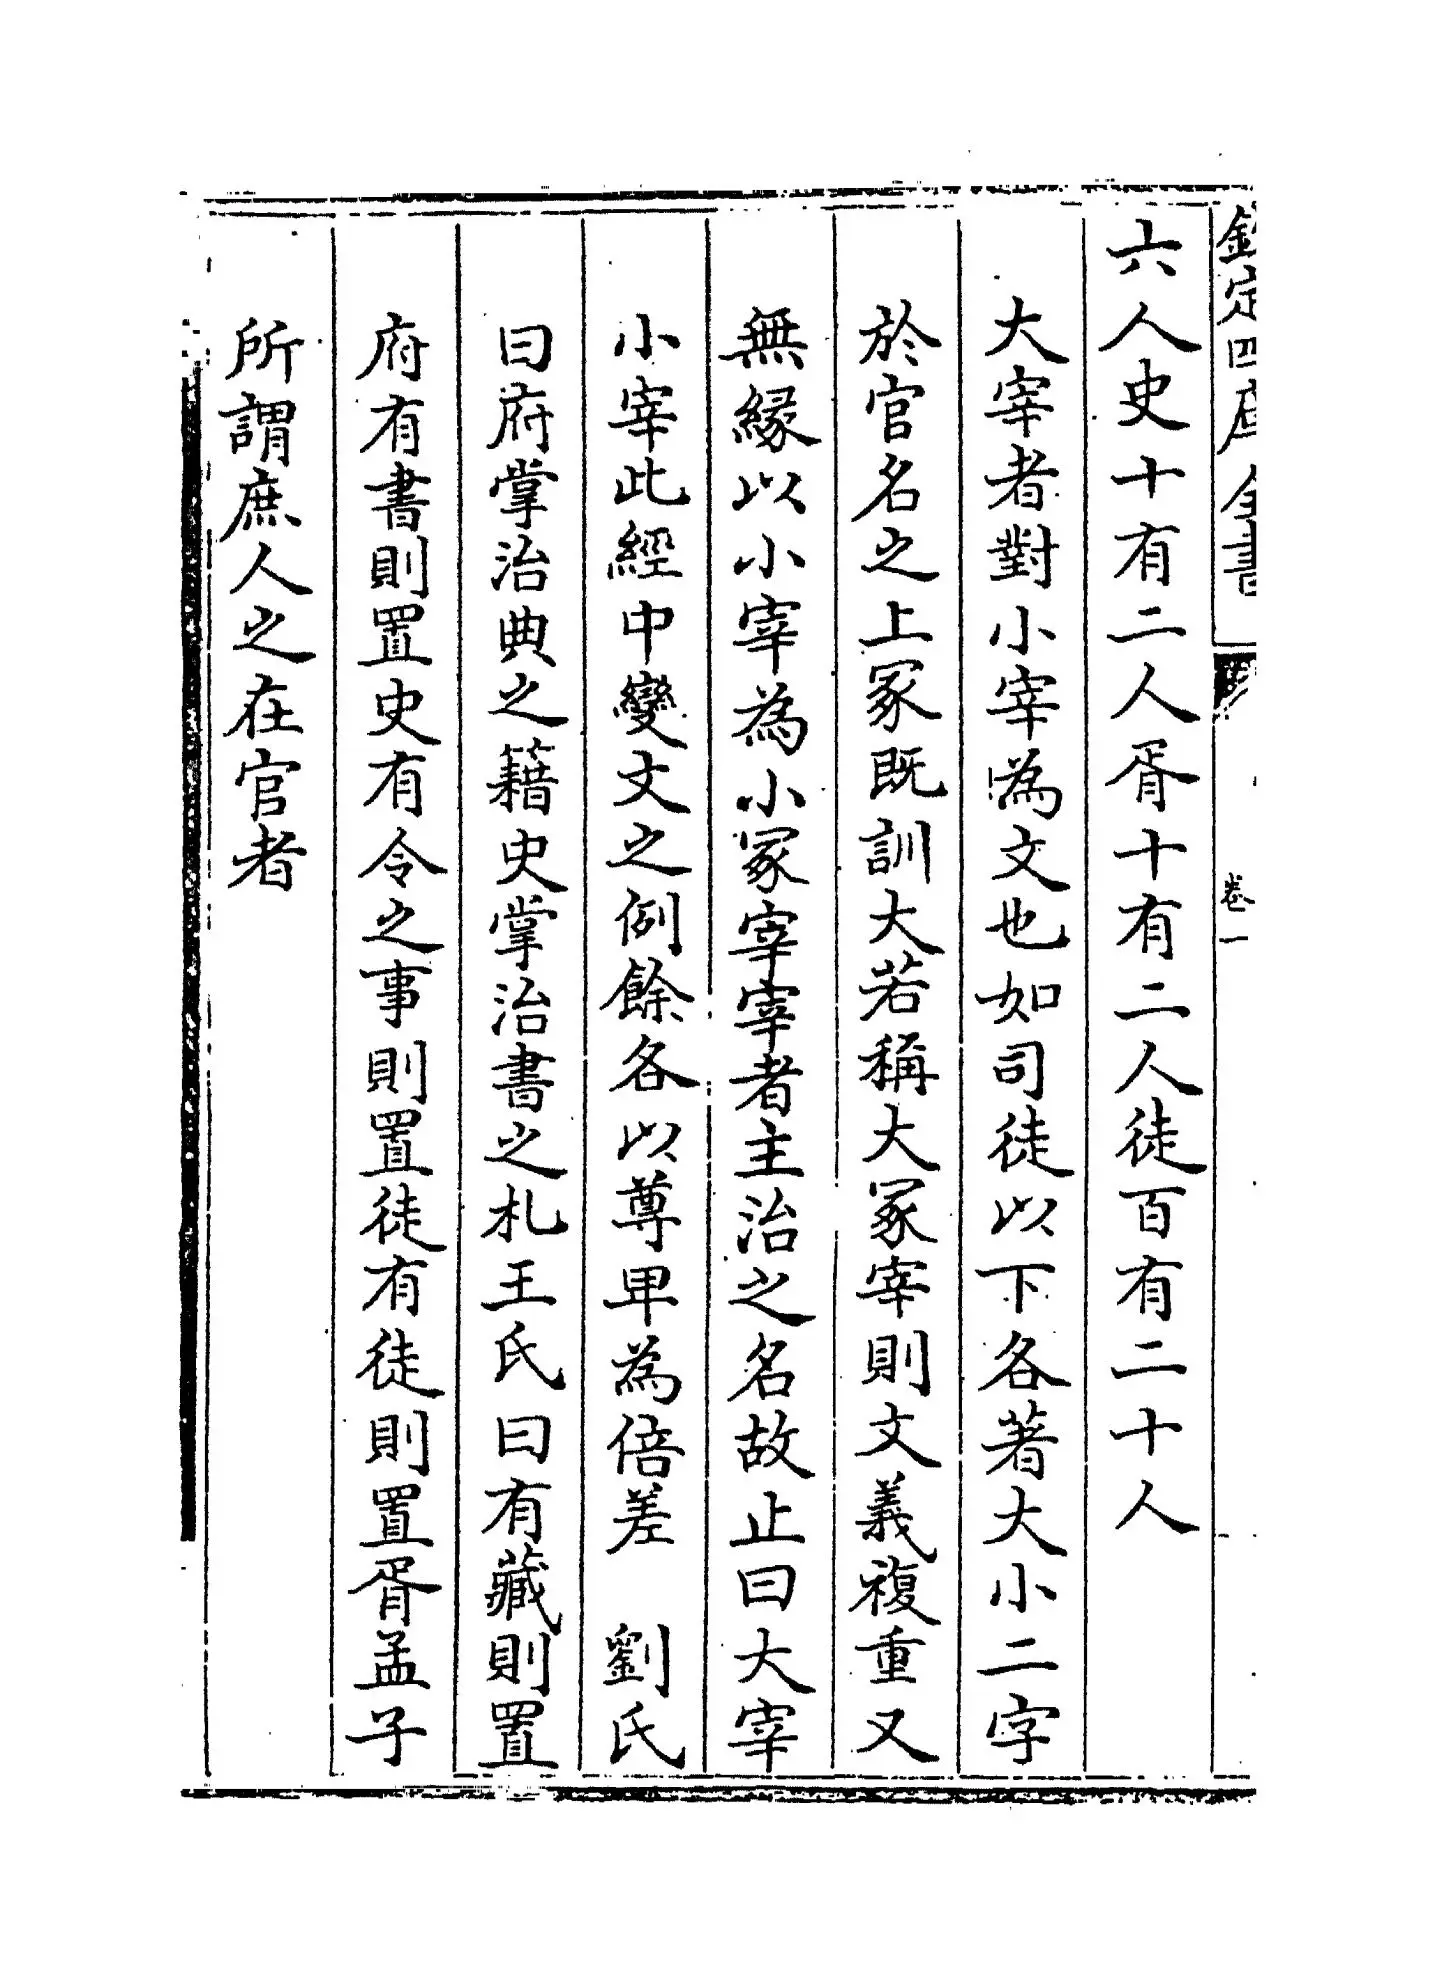 欽定四庫全書
卷一
六人史十有二人胥十有二人徒百有二十人
大宰者對小宰為文也如司徒以下各著大小二字
於官名之上冢既訓大若稱大冢宰則文義複重又
無縁以小宰為小冢宰宰者主治之名故止曰大宰
小宰此經中變文之例餘各以尊卑為倍差　劉氏
曰府掌治典之籍史掌治書之札王氏曰有藏則置
府有書則置史有令之事則置徒有徒則置胥孟子
所謂庶人之在官者